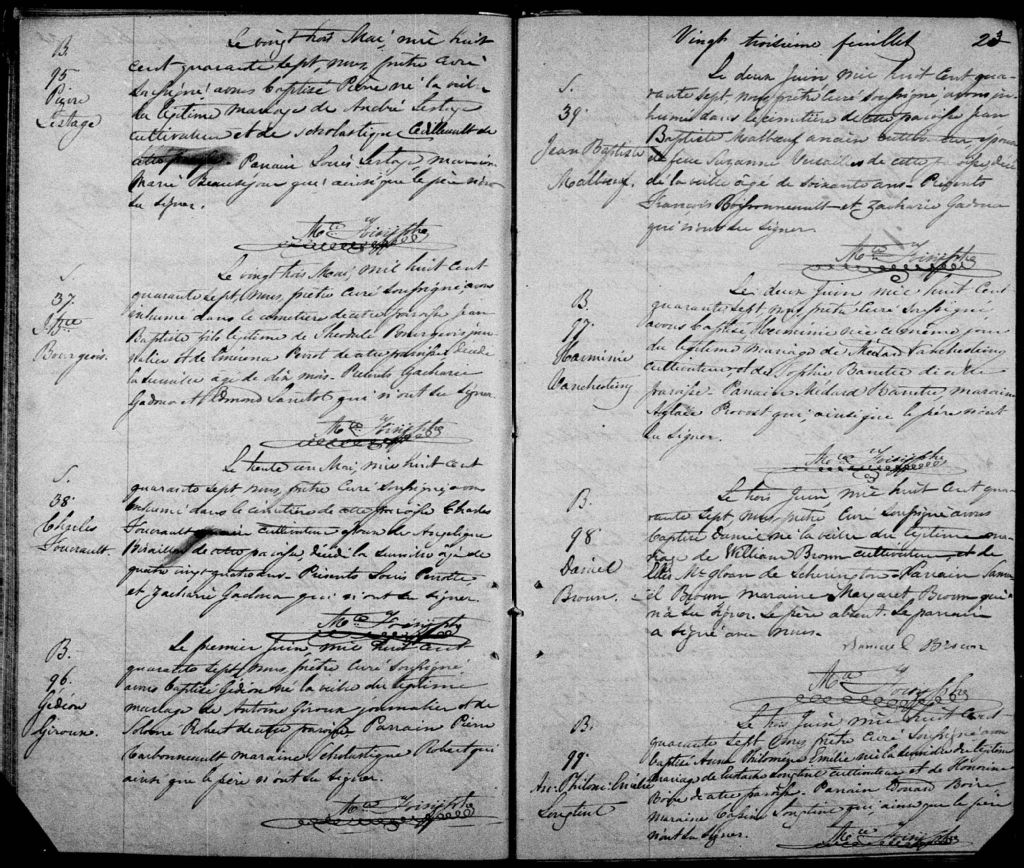 B.
95
Pierre
Lestage
Le vingt trois Mai, mil huit
cent quarante sept, nous, prêtre curé
soussigné avons baptisé Pierre né la veille
du légitime mariage de André Lestage
cultivateur et de Scholastique de
Parrain Louis Lestage, marraine
Marie Beausejour qui ainsi que le père n'ont
su signer.
S.
37.
Bourgeois.
Le vingt trois Mai, mil huit cent
quarante sept, nous, prêtre curé soussigné, avons
inhumé dans le cimetière de cette paroisse Jean
Baptiste fils légitime de Théodule Bourgeois jour-
nalier et de Pirot de cette paroisse, décédé
la surveille âgé de dix mois. Présents Zacharie
Gadoua et Edmond qui n'ont su signer.
S.
38.
Charles
Foucrault.
Le trente un Mai, mil huit cent
quarante sept, nous, prêtre curé soussigné, avons
inhumé dans le cimetière de cette paroisse Charles
Foucrault cultivateur époux de Angelique
Bisaillon de cette paroisse, décédé la surveille âgé de
quatre vingt quatre ans. Présents Louis
et Zacharie Gadoua qui n'ont su signer.
B.
96.
Gédéon
Giroux.
Le premier Juin, mil huit cent
quarante sept, nous, prêtre curé soussigné
avons baptisé Gédéon né la veille du légitime
mariage de Antoine Giroux journalier et de
Robert de cette paroisse. Parrain Pierre
Carbonneault marraine Scholastique Robert qui
ainsi que le père n'ont su signer.
Vingt troisième feuillet
23
S.
39
Jean Baptiste
Malbœuf.
Le deux Juin mil huit cent qua-
rante sept, nous prêtre curé soussigné, avons in-
humé dans le cimetière de cette paroisse Jean
Baptiste Malbœuf ancien époux
de feue Suzanne Versailles de cette paroisse décé-
dé la veille âgé de soixante ans. Présents
François Boissonneault et Zacharie Gadoua
qui n'ont su signer.
B.
97.
Herminie
Le deux Juin, mil huit cent
quarante sept, nous prêtre curé soussigné,
avons baptisé Herminie née ce même jour
du légitime mariage de Médard
cultivateur et de Sophie de cette
paroisse. Parrain Médard marraine
Aglaée Provost qui, ainsi que le père n'ont
su signer.
B.
98
Daniel
Brown.
Le trois Juin, mil huit cent qua-
rante sept, nous prêtre curé soussigné avons
baptisé Daniel né la veille du légitime ma-
riage de William Brown cultivateur, et de
de Sherrington. Parrain Samu-
el Brown marraine Margaret Brown qui
n'a su signer. Le père absent. Le parrain
a signé avec nous.
Samuel Brown
B.
99.
An. Philom. Emélie
Longtin
Le trois Juin, mil huit cent
quarante sept, nous prêtre curé soussigné avons
baptisé Anne Philomène Emelie née la surveille du légitime
mariage de Longtin cultivateur et de Honorine
Boire de cette paroisse. Parrain Edouard Boire
marraine Longtin qui, ainsi que le père
n'ont su signer.